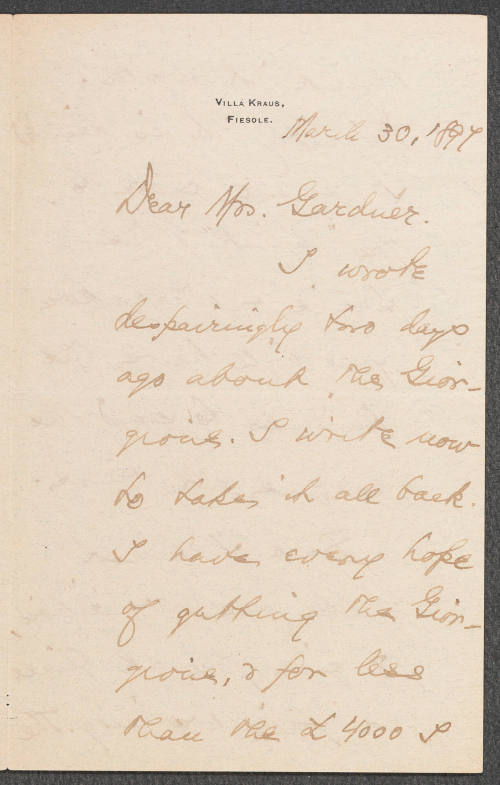 VILLA KRAUS,
FIESOLE.
March 30, 1897
Dear Mrs. Gardner.
I wrote
despairingly two days
ago about the Gior-
gione. I write now
to take it all back.
I have every hope
of getting the Gior-
gione, & for less
than the £ 4000 I